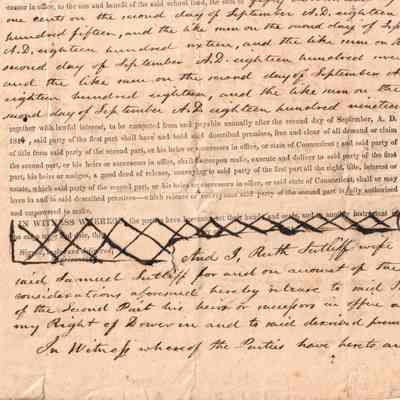 cessor in office, to the use and benefit of the said school fund, the sum of
one cent on the second day of September A.D. eighteen
hundred fifteen, and the like sum on the second day of Sep
A.D. eighteen hundred sixteen, and the like sum on
second day of September A.D. eighteen hundred
and the like sum on the second day of September A
eighteen hundred eighteen, and the like sum on the
second day of September A.D. eighteen hundred nineteen
together with lawful interest, to be computed from and payable annually after the second day of September, A. D.
181 , said party of the first part shall have and hold said described premises, free and clear of all demand or claim
of title from said party of the second part, or his heirs or successors in office, or state of Connecticut; and said party of
the second part, or his heirs or successors in office, shall thereupon make, execute and deliver to said party of the first
part, his heirs or assigns, a good deed of release, conveying to said party of the first part all the right, title, interest or
estate, which said party of the second part, or his heirs or successors in office, or said state of Connecticut, shall or may
have in and to said described premises—which release or conveyance said party of the second part is fully authorised
and empowered to make.
IN WITNESS WHEREOF, the parties have hereunto set their hands and seals, and to another instrument
the same
And I, Ruth Sutliff wife
said Samuel Sutliff for and on account of the
considerations aforesaid hereby release to said
of the Second Part his heirs or successors in office
my Right of Dower in and to said described prem
In Witness whereof the Parties have hereto